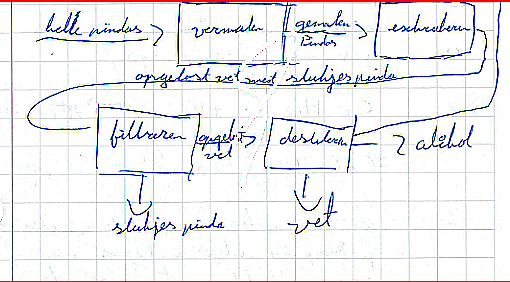 hele pindas
vermalen
gemalen
Pindas
extraheren
opgelost vet met stukjes pinda
filtreren
opgelost
vet
destilleren
alcohol
stukjes pinda
vet